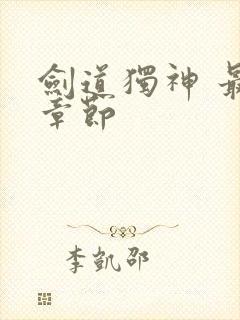 劍道獨神 最
章節
李凱邵